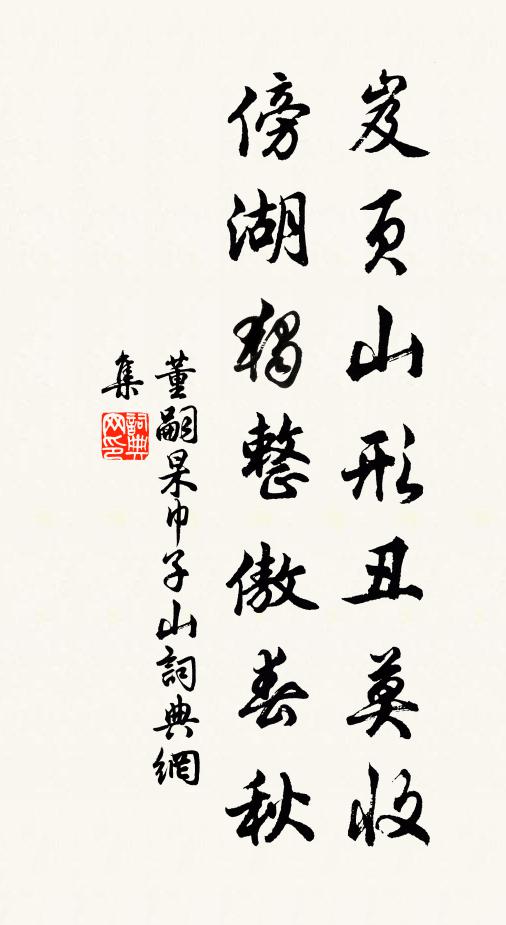 岌頁山形丑莫收
傍湖獨整傲春秋
董嗣杲巾子山詞典網
集
詞典網印